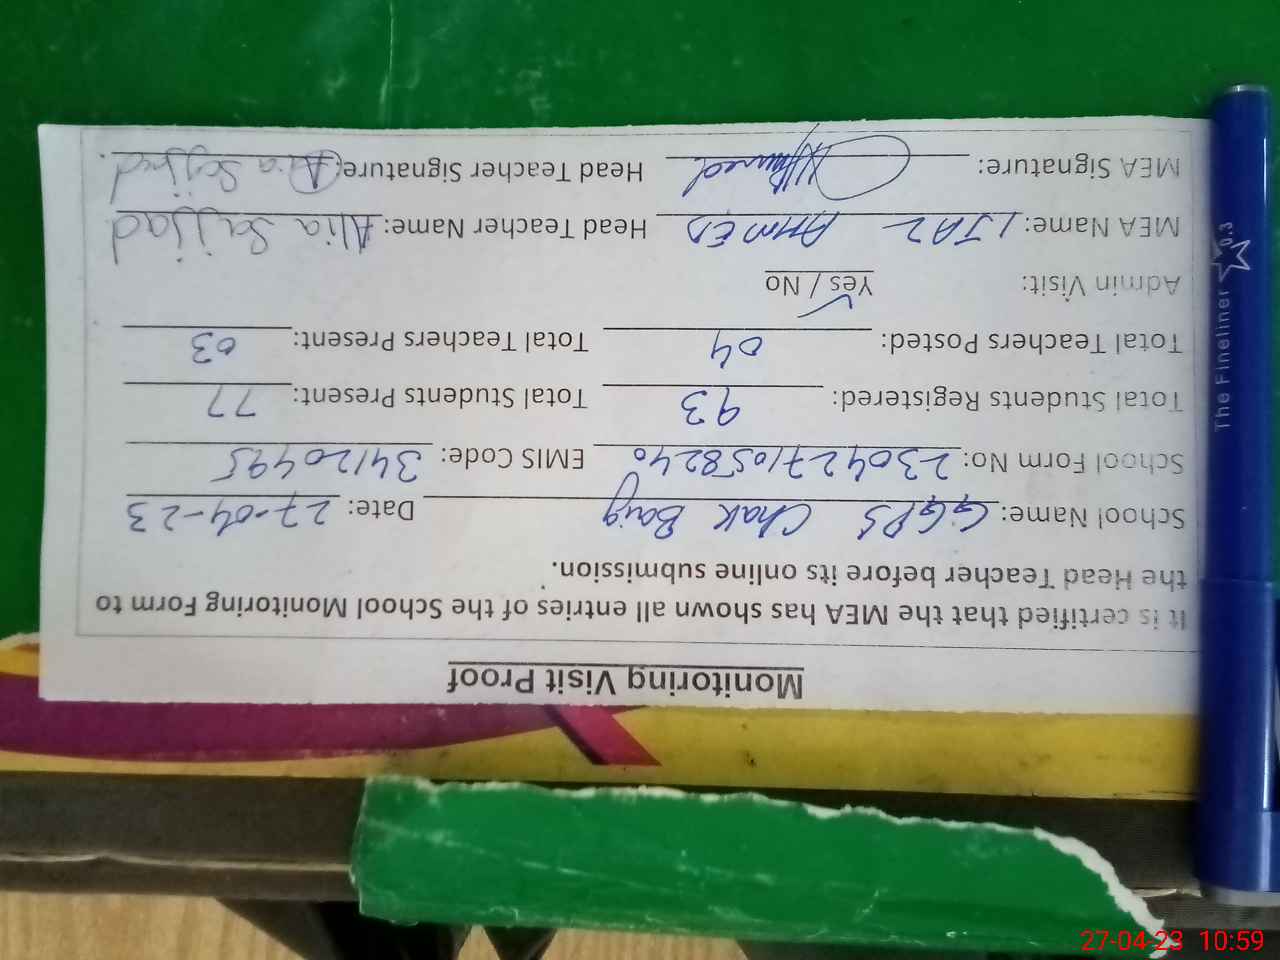 Monitoring Visit Proof
It is certified that the MEA has shown all entries of the School Monitoring Form to
the Head Teacher before its online submission.
School Name: GGPS Chak Baig Date: 27-04-23
School Form No: 230427105824 EMIS Code: 34120495
Total Students Registered: 93 Total Students Present: 77
Total Teachers Posted: 04 Total Teachers Present: 03
Admin Visit: Yes / No
MEA Name: IJAZ AHMED Head Teacher Name: Alia Sajjad
MEA Signature: Head Teacher Signature: Alia Sajjad
The Fineliner 0.3
27-04-23 10:59